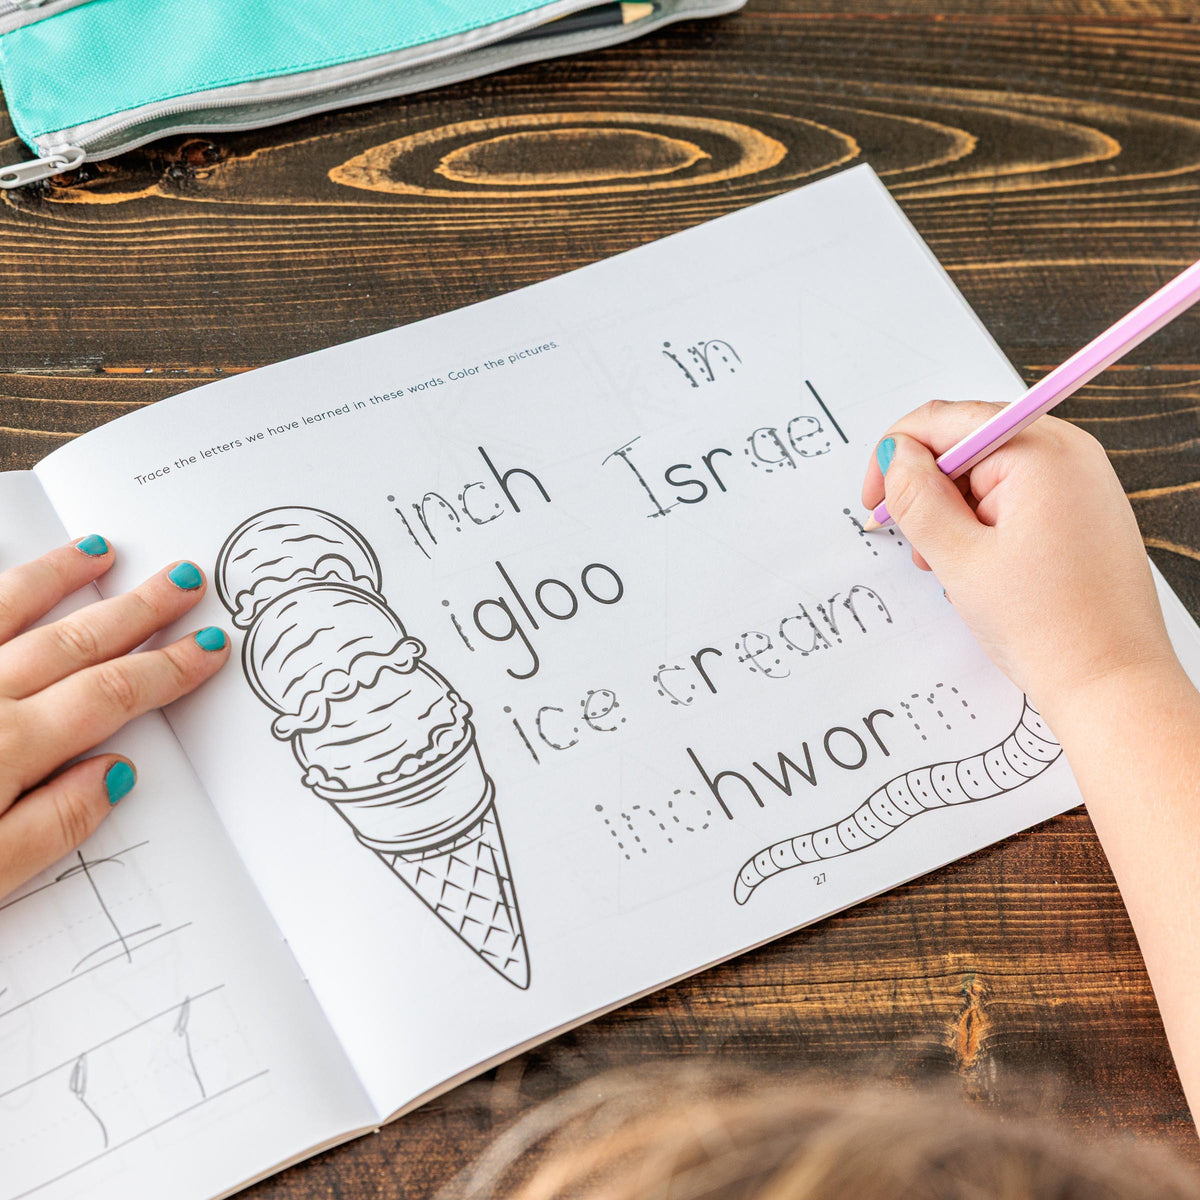 Trace the letters we have learned in these words. Color the pictures.
in
inch Israel
igloo
ice cream
inchworm
27